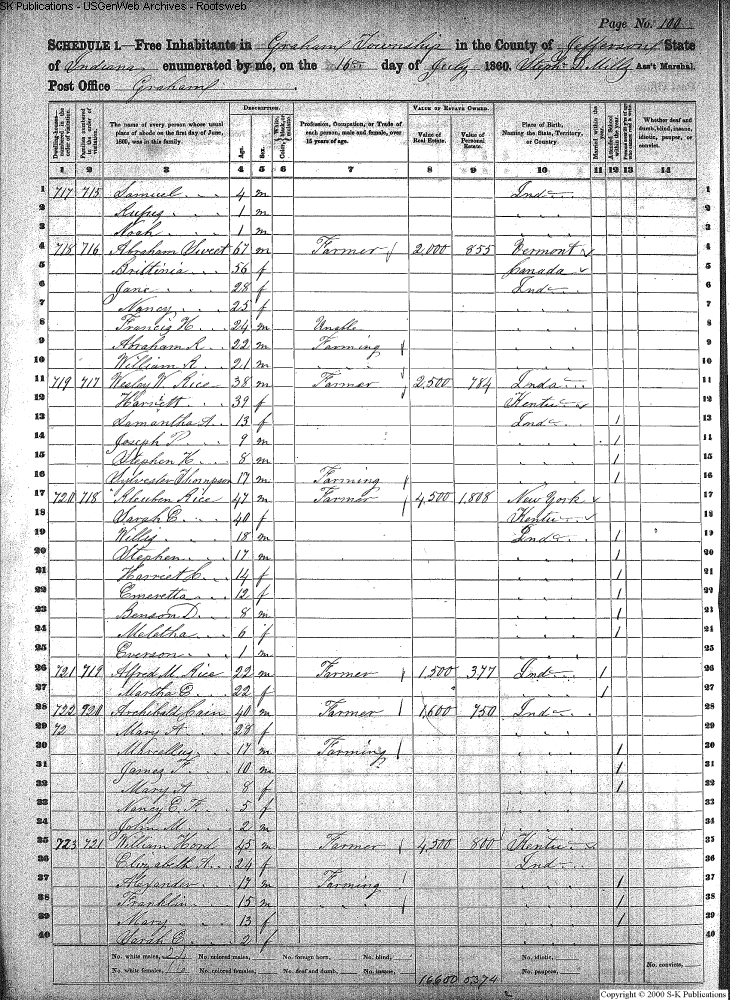 S-K Publications - USGenWeb Archives - Rootsweb
Page No. 100
SCHEDULE 1.—Free Inhabitants in Graham Township in the County of Jefferson State
of Indiana enumerated by me, on the 16th day of July 1860. Steph. D. Mills Ass't Marshal.
Post Office Graham
Dwelling-houses—numbered in the order of visitation.
Families numbered in the order of visitation.
The name of every person whose usual place of abode on the first day of June, 1860, was in this family.
DESCRIPTION.
Age.
Sex.
Color, White, black, or mulatto.
Profession, Occupation, or Trade of each person, male and female, over 15 years of age.
VALUE OF ESTATE OWNED.
Value of Real Estate.
Value of Personal Estate.
Place of Birth, Naming the State, Territory, or Country.
Married within the year.
Attended School within the year.
Whether deaf and dumb, blind, insane, idiotic, pauper, or convict.
1 2 3 4 5 6 7 8 9 10 11 12 13 14
1 717 715 Samuel 4 m Ind 1
2 Rufus 1 m 2
3 Noah 1 m 3
4 718 716 Abraham Sweet 67 m Farmer 2,000 855 Vermont 4
5 Brittinia 56 f Canada 5
6 Jane 28 f Ind 6
7 Nancy 25 f 7
8 Francis H 24 m Unable 8
9 Abraham R 22 m Farming 9
10 William R 21 m 10
11 719 717 Wesley W. Rice 38 m Farmer 2,500 784 Inda 11
12 Harriett 39 f Kentu 12
13 Samantha A. 13 f Ind / 13
14 Joseph P. 9 m / 11
15 Stephen H. 8 m / 15
16 Sylvester Thompson 17 m Farming / 16
17 720 718 Rleuben Rice 47 m Farmer 4,500 1,808 New York 17
18 Sarah E. 40 f Kentu 18
19 Willis 18 m Ind / 19
20 Stephen 17 m / 20
21 Harriet L. 14 f / 21
22 Emeretta 12 f / 22
23 Benson D. 8 m / 23
24 Meletha 6 f / 21
25 Everson 1 m 25
26 721 719 Alfred M. Rice 22 m Farmer 1,500 377 Ind / 26
27 Martha E. 22 f / 27
28 722 720 Archibald Cain 40 m Farmer 1,600 750 Ind 28
29 72 Mary A 28 f 29
30 Marcellus 17 m Farming / 20
31 James F. 10 m / 31
32 Mary A 8 f / 32
33 Nancy E. F. 5 f 33
34 John M. 2 m 34
35 723 721 William Hord 45 m Farmer 4,500 800 Kentu 35
36 Elizabeth A. 24 f Ind 36
37 Alexander 17 m Farming / 37
38 Franklin 15 m / 38
39 Mary 13 f / 39
40 Sarah E. 2 f 40
No. white males, 24 No. colored males, No. foreign born, No. blind, No. idiotic, No. convicts,
No. white females, 16 No. colored females, No. deaf and dumb, No. insane, 16600 5374 No. paupers,
Copyright © 2000 S-K Publications